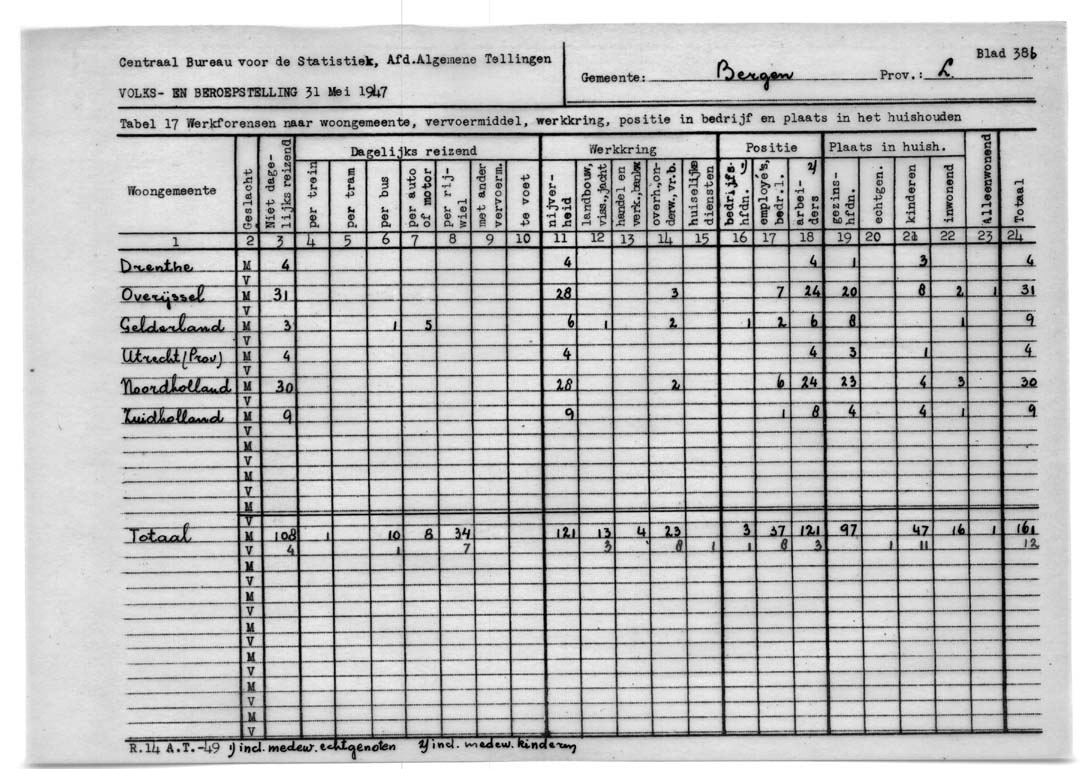 Centraal Bureau voor de Statistiek, Afd.Algemene Tellingen
VOLKS- EN BEROEPSTELLING 31 Mei 1947
Gemeente: Bergen Prov.: L. Blad 38b
Tabel 17 Werkforensen naar woongemeente, vervoermiddel, werkkring, positie in bedrijf en plaats in het huishouden
Woongemeente Geslacht Niet dage- lijks reizend Dagelijks reizend Werkkring Positie Plaats in huish. Alleenwonend Totaal
per trein per tram per bus per auto of motor per rij- wiel met ander vervoerm. te voet nijver- heid landbouw, viss., jacht handel en verk., banken overh., on- derw., vr.b. huiselijke diensten bedrijfs- hfdn. 1) employé's, bedr.l. arbei- ders 2) gezins- hfdn. echtgen. kinderen inwonend
1 2 3 4 5 6 7 8 9 10 11 12 13 14 15 16 17 18 19 20 21 22 23 24
Drenthe M 4 4 4 1 3 4
V
Overijssel M 31 28 3 7 24 20 8 2 1 31
V
Gelderland M 3 1 5 6 1 2 1 2 6 8 1 9
V
Utrecht (Prov) M 4 4 4 3 1 4
V
Noordholland M 30 28 2 6 24 23 4 3 30
V
Zuidholland M 9 9 1 8 4 4 1 9
V
M
V
M
V
M
V
Totaal M 108 1 10 8 34 121 13 4 23 3 37 121 97 47 16 1 161
V 4 1 7 3 8 1 1 8 3 1 11 12
M
V
M
V
M
V
M
V
M
V
M
V
R.14 A.T.-49 1) incl. medew. echtgenoten 2) incl. medew. kinderen